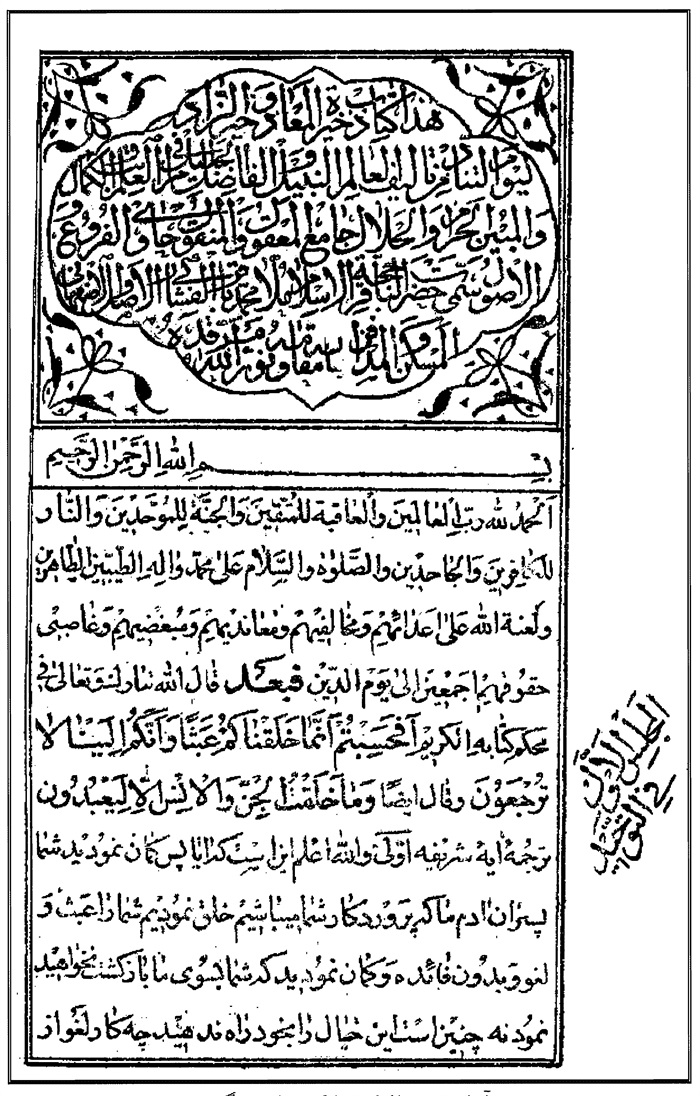 هذا كتاب ذخيرة المعاد وخير الزاد
ليوم التناد من تأليف العالم النبيل الفاضل العالم الكمال
والمبين الحرام والحلال جامع المعقول والمنقول حاوى الفروع و
الاصول سمى حضرة حجة الاسلام ملا محمد باقر الفشاركى الاصل والاصفهانى
المسكن و المدفن مقامه ونور الله مرقده
بسم الله الرحمن الرحيم
الحمد لله رب العالمين والعاقبة للمتقين والجنة للموحدين والنار
للكافرين والجاحدين والصلوة والسلام على محمد واله الطيبين الطاهرين
ولعنة الله على اعدائهم ومخالفيهم ومعانديهم ومبغضيهم وغاصبى
حقوقهم اجمعين الى يوم الدين فبعد قال الله تبارك وتعالى فى
محكم كتابه الكريم أفحسبتم أنما خلقناكم عبثا وأنكم الينا لا
ترجعون وقال ايضا وما خلقت الجن والانس الا ليعبدون
ترجمهٔ آيهٔ شريفه اولى والله اعلم اين است كه ايا پس كمان نموديد شما
پسران ادم ما كه پروردكار شما ميباشيم خلق نموديم شما را عبث و
لغو وبدون فائده وكمان نموديد كه شما بسوى ما بازكشت نخواهيد
نمود نه چنين است اين خيال را بخود راه ندهيد چه كار لغو از
المجلس الاول
فى التوحيد